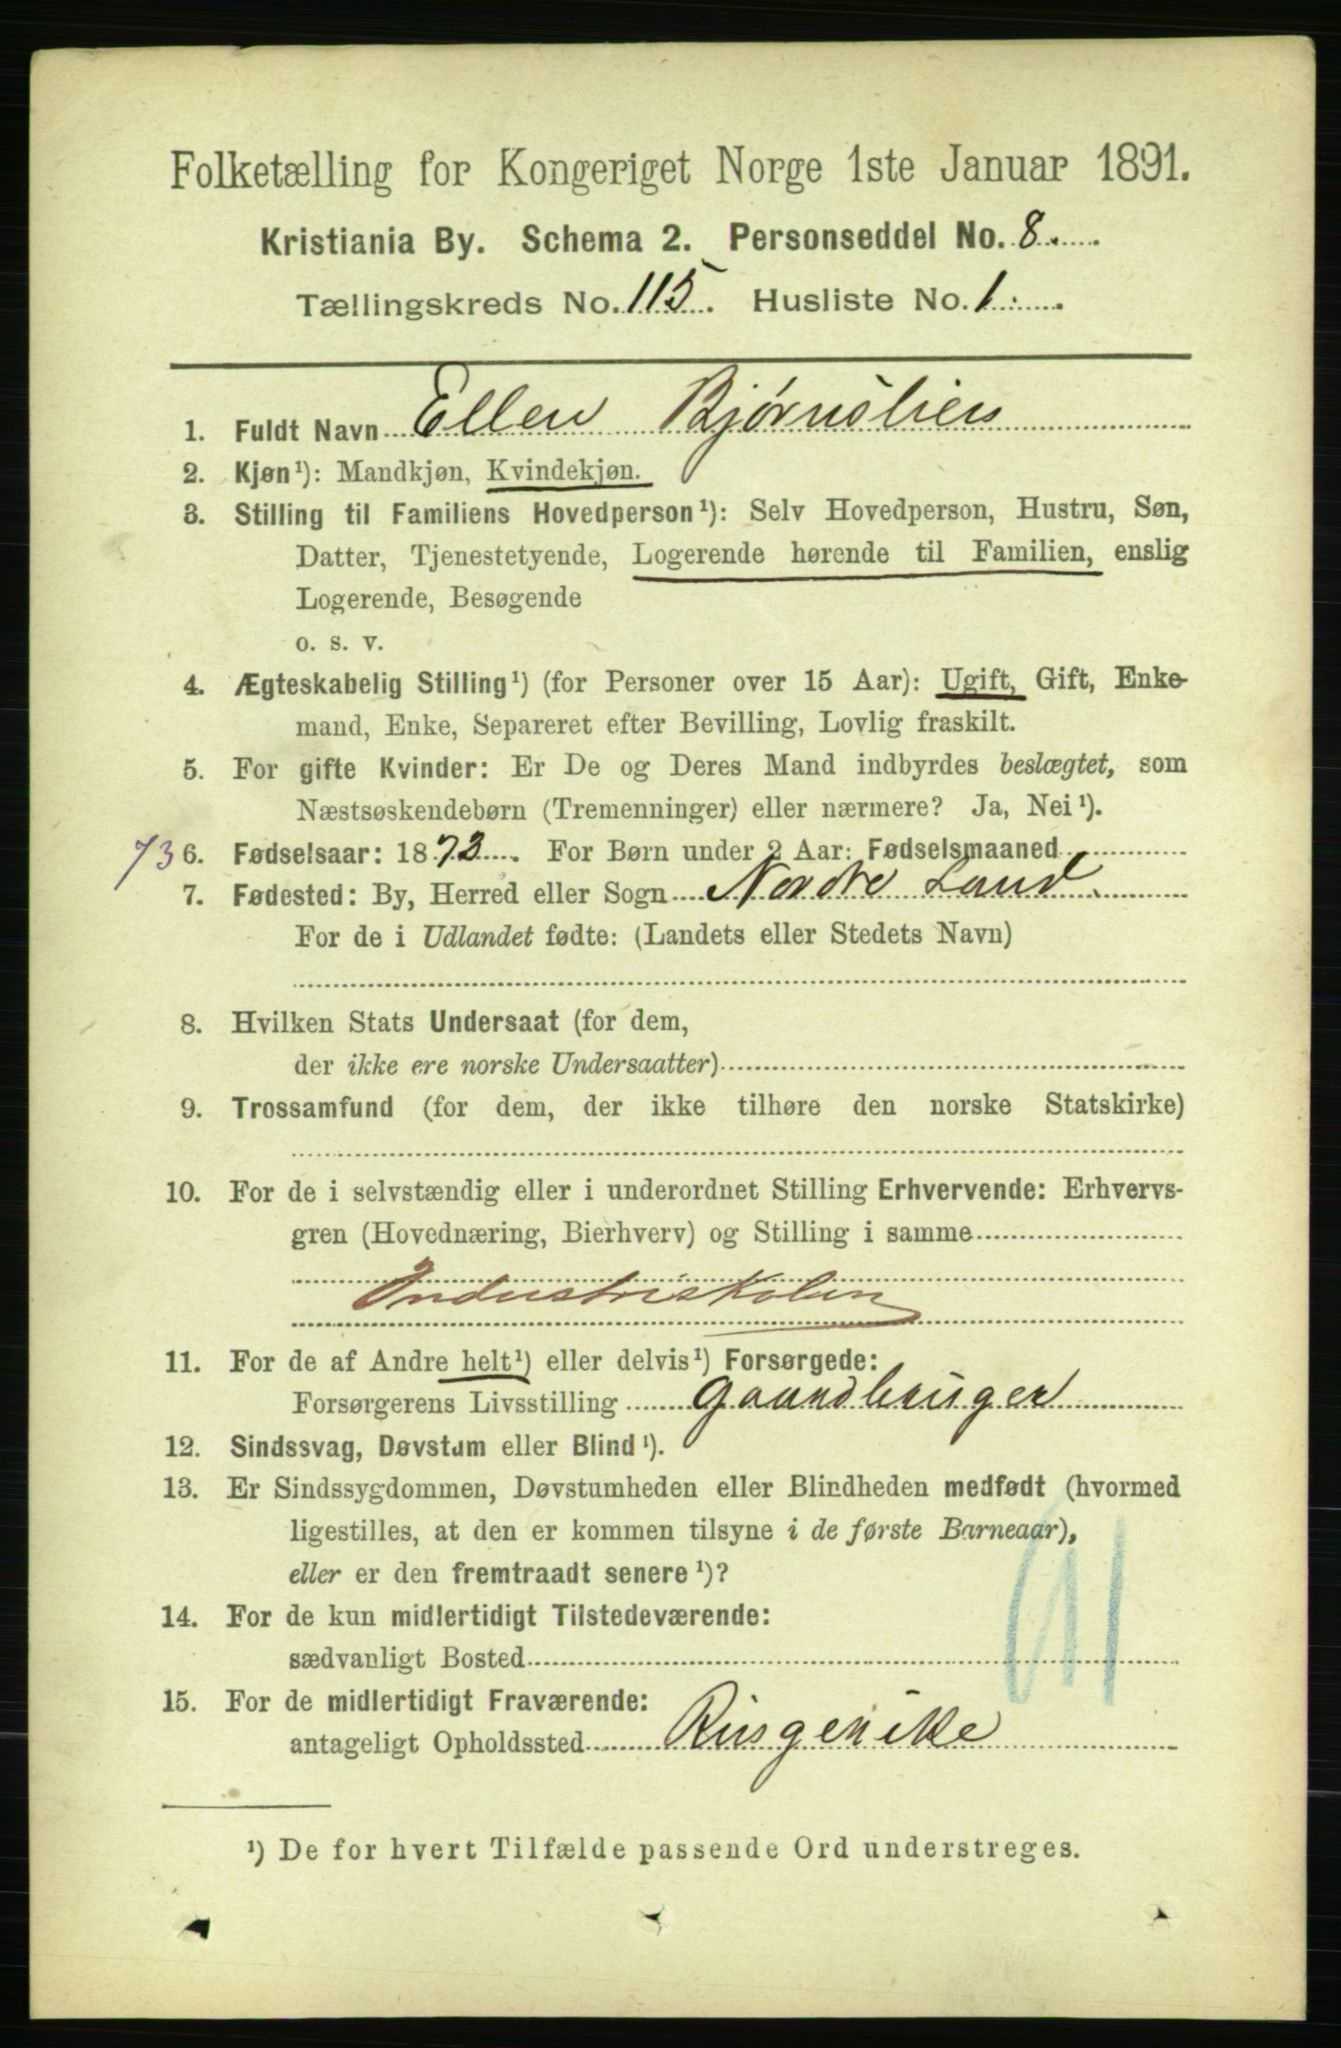 Folketælling for Kongeriget Norge 1ste Januar 1891.
Kristiania By. Schema 2. Personseddel No. 8.
Tællingskreds No. 115. Husliste No. 1.
1. Fuldt Navn Ellen Bjørnslien
2. Kjøn¹): Mandkjøn, Kvindekjøn.
3. Stilling til Familiens Hovedperson¹): Selv Hovedperson, Hustru, Søn,
Datter, Tjenestetyende, Logerende hørende til Familien, enslig
Logerende, Besøgende
o. s. v.
4. Ægteskabelig Stilling¹) (for Personer over 15 Aar): Ugift, Gift, Enke-
mand, Enke, Separeret efter Bevilling, Lovlig fraskilt.
5. For gifte Kvinder: Er De og Deres Mand indbyrdes beslægtet, som
Næstsøskendebørn (Tremenninger) eller nærmere? Ja, Nei¹).
73 6. Fødselsaar: 1873. For Børn under 2 Aar: Fødselsmaaned
7. Fødested: By, Herred eller Sogn Nordre Land.
For de i Udlandet fødte: (Landets eller Stedets Navn)
8. Hvilken Stats Undersaat (for dem,
der ikke ere norske Undersaatter)
9. Trossamfund (for dem, der ikke tilhøre den norske Statskirke)
10. For de i selvstændig eller i underordnet Stilling Erhvervende: Erhvervs-
gren (Hovednæring, Bierhverv) og Stilling i samme
Industriskolen
11. For de af Andre helt¹) eller delvis¹) Forsørgede:
Forsørgerens Livsstilling Gaardbruger
12. Sindssvag, Døvstum eller Blind¹).
13. Er Sindssygdommen, Døvstumheden eller Blindheden medfødt (hvormed
ligestilles, at den er kommen tilsyne i de første Barneaar),
eller er den fremtraadt senere¹)?
14. For de kun midlertidigt Tilstedeværende:
sædvanligt Bosted
15. For de midlertidigt Fraværende:
antageligt Opholdssted Ringerike
¹) De for hvert Tilfælde passende Ord understreges.